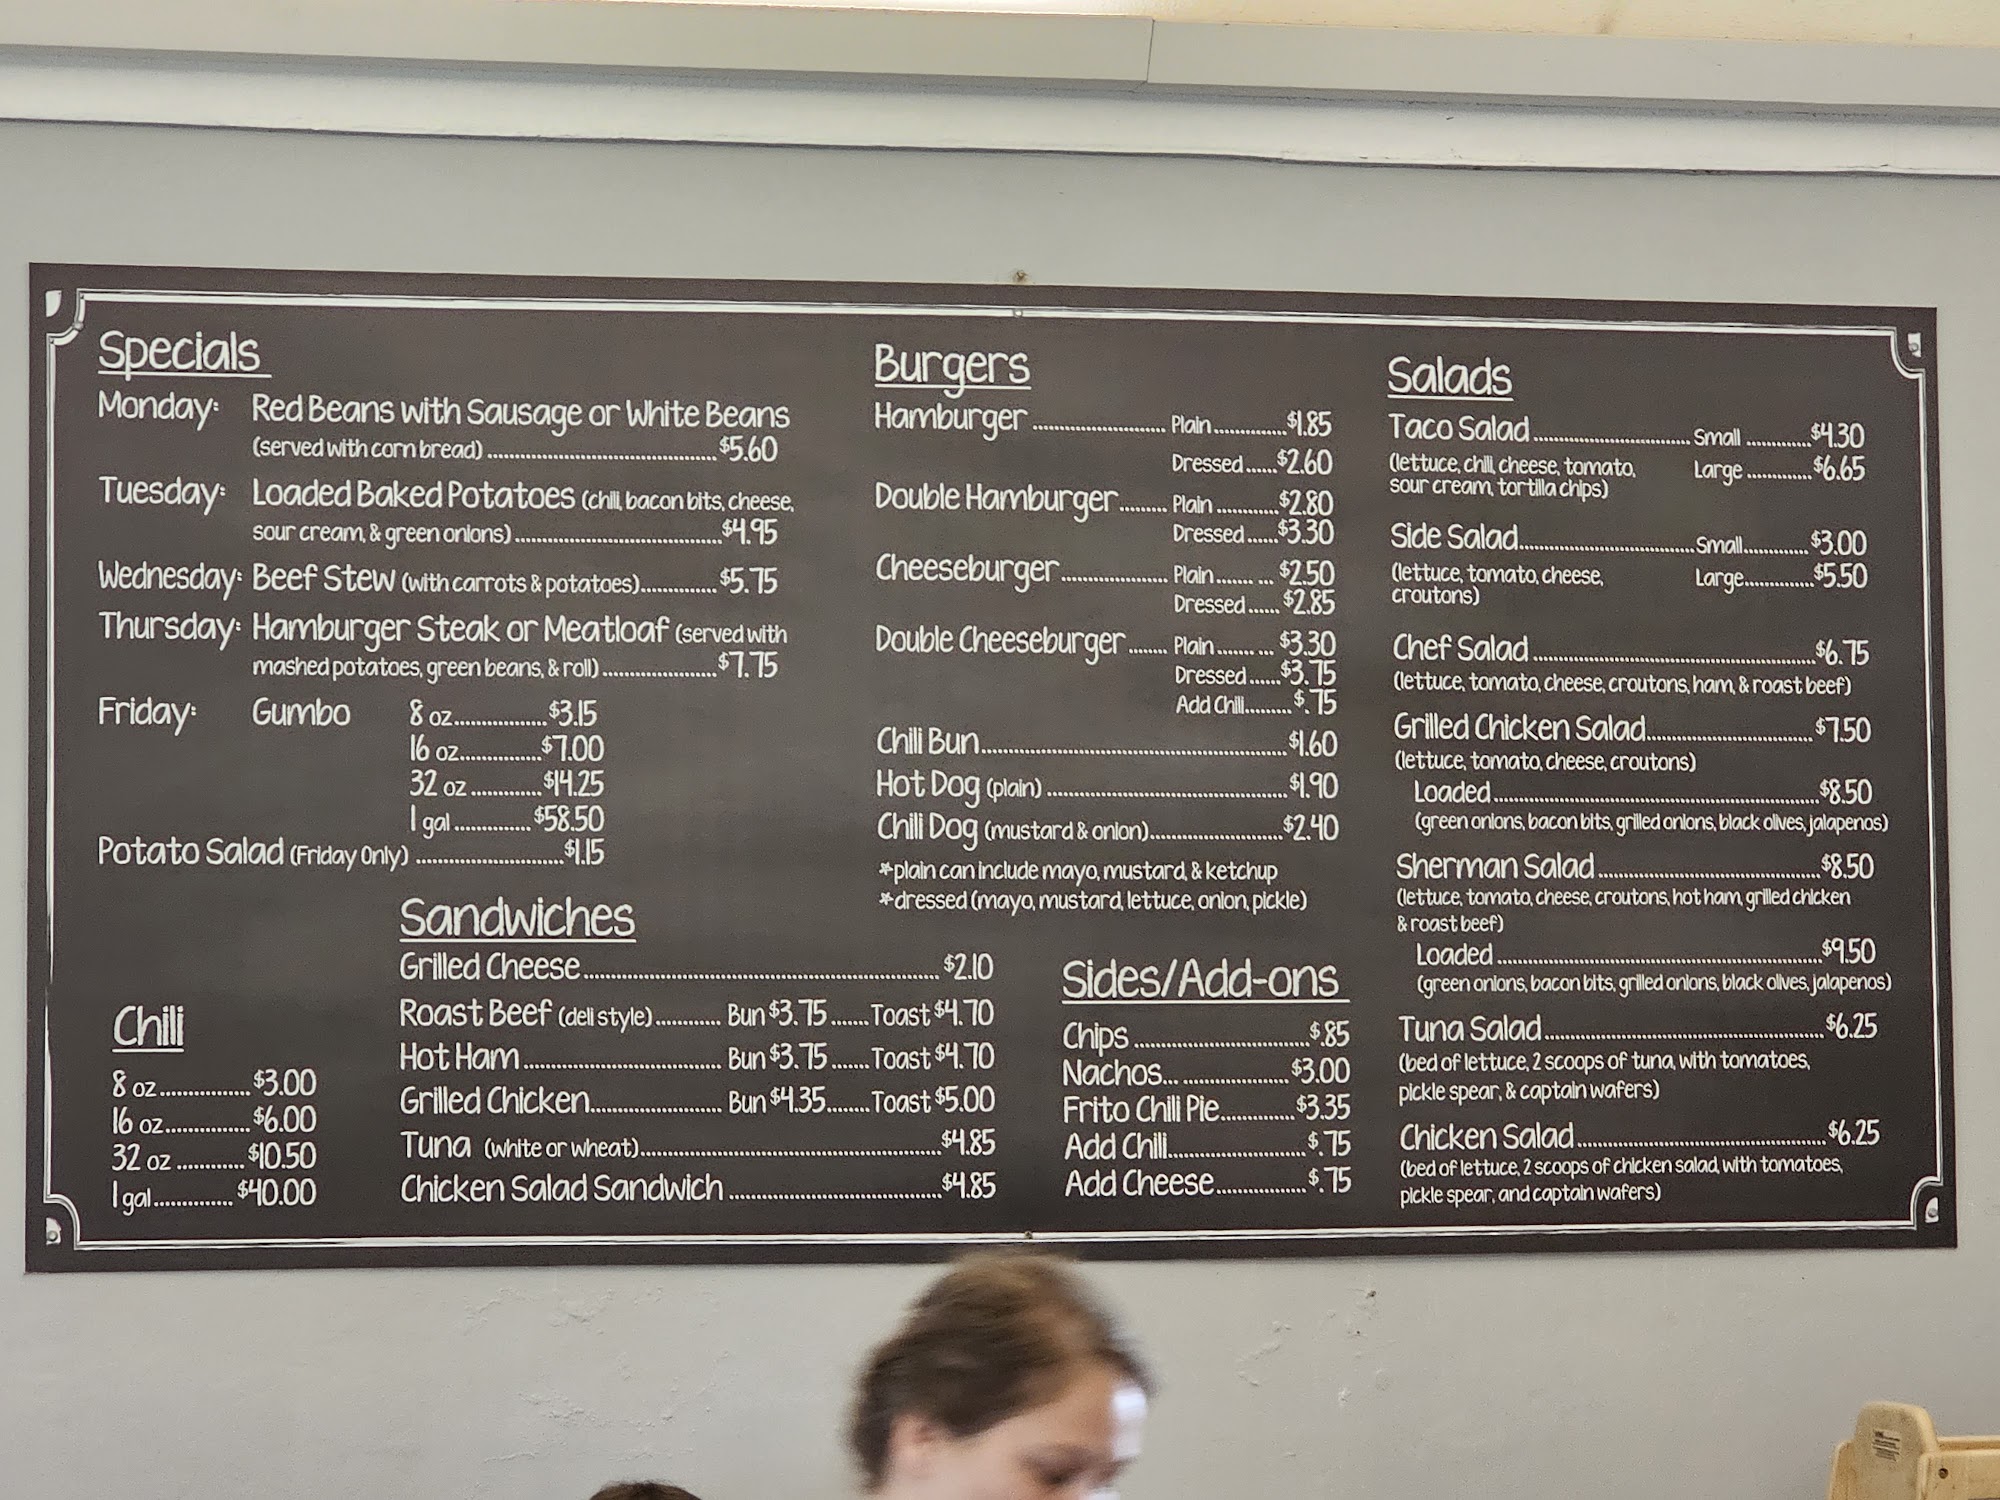 Specials
Monday: Red Beans with Sausage or White Beans
(served with corn bread) ........ $5.60
Tuesday: Loaded Baked Potatoes (chili, bacon bits, cheese,
sour cream, & green onions) ........ $4.95
Wednesday: Beef Stew (with carrots & potatoes)........ $5.75
Thursday: Hamburger Steak or Meatloaf (served with
mashed potatoes, green beans, & roll) ........ $7.75
Friday: Gumbo 8 oz........ $3.15
16 oz........ $7.00
32 oz ........ $14.25
1 gal ........ $58.50
Potato Salad (Friday Only) ........ $1.15
Chili
8 oz........ $3.00
16 oz........ $6.00
32 oz ........ $10.50
1 gal........ $40.00
Sandwiches
Grilled Cheese........ $2.10
Roast Beef (deli style)........ Bun $3.75 ....... Toast $4.70
Hot Ham........ Bun $3.75 ....... Toast $4.70
Grilled Chicken........ Bun $4.35........ Toast $5.00
Tuna (white or wheat)........ $4.85
Chicken Salad Sandwich ........ $4.85
Burgers
Hamburger ........ Plain........ $1.85
Dressed ...... $2.60
Double Hamburger ........ Plain ........ $2.80
Dressed ...... $3.30
Cheeseburger........ Plain........ ... $2.50
Dressed ...... $2.85
Double Cheeseburger ....... Plain........ ... $3.30
Dressed ...... $3.75
Add Chili......... $.75
Chili Bun........ $1.60
Hot Dog (plain) ........ $1.90
Chili Dog (mustard & onion)........ $2.40
*plain can include mayo, mustard, & ketchup
*dressed (mayo, mustard, lettuce, onion, pickle)
Sides/Add-ons
Chips ........ $.85
Nachos... ........ $3.00
Frito Chili Pie........ $3.35
Add Chili........ $.75
Add Cheese........ $.75
Salads
Taco Salad ........ Small ........ $4.30
(lettuce, chili, cheese, tomato, Large ........ $6.65
sour cream, tortilla chips)
Side Salad........ Small........ $3.00
(lettuce, tomato, cheese, Large........ $5.50
croutons)
Chef Salad ........ $6.75
(lettuce, tomato, cheese, croutons, ham, & roast beef)
Grilled Chicken Salad........ $7.50
(lettuce, tomato, cheese, croutons)
Loaded ........ $8.50
(green onions, bacon bits, grilled onions, black olives, jalapenos)
Sherman Salad ........ $8.50
(lettuce, tomato, cheese, croutons, hot ham, grilled chicken
& roast beef)
Loaded ........ $9.50
(green onions, bacon bits, grilled onions, black olives, jalapenos)
Tuna Salad ........ $6.25
(bed of lettuce, 2 scoops of tuna, with tomatoes,
pickle spear, & captain wafers)
Chicken Salad ........ $6.25
(bed of lettuce, 2 scoops of chicken salad, with tomatoes,
pickle spear, and captain wafers)